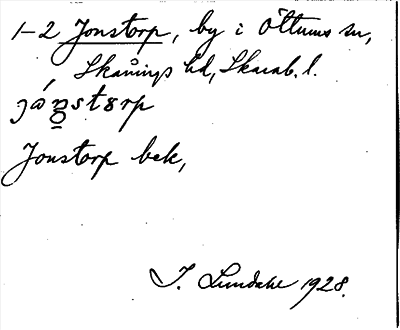 1-2 Jonstorp, by i Öttums sn,
Skånings hd, Skarab. l.
Jonstorp bek,
I. Lundahl 1928.